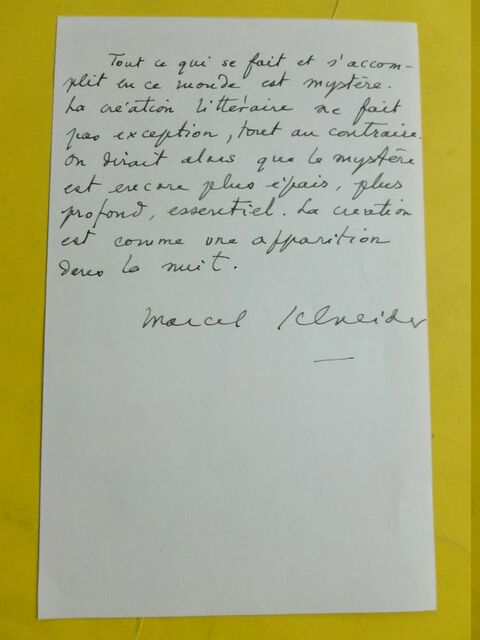 Tout ce qui se fait et s'accom-
plit en ce monde est mystère.
La création littéraire ne fait
pas exception, tout au contraire.
On dirait alors que le mystère
est encore plus épais, plus
profond, essentiel. La création
est comme une apparition
dans la nuit.
Marcel Schneider